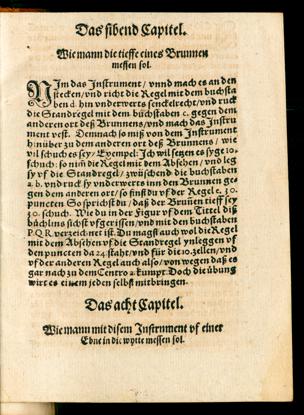 Das sibend Capitel.
Wie mann die tieffe eines Brunnen
messen sol.
Nim das Instrument / vnnd mach es an den
stecken / vnd richt die Regel mit dem buchsta
ben d. hin vnderwerts senckelrecht / vnd ruck
die Standregel mit dem buchstaben c. gegen dem
anderen ort deß Brunnens / vnd mach das Instru
ment vest. Demnach so miß von dem Instrument
hinüber zu dem anderen ort deß Brunnens / wie
vil schuch es sey / Exempel: Ich wil setzen es syge 10.
schuch: so nim die Regel mit dem Absehen / vnd leg
sy vf die Standregel / zwüschend die buchstaben
a. b. vnd ruck sy vnderwerts inn den Brunnen ge
gen dem anderen ort / so finst du vf der Regel c. 30.
puncten So sprichst du / daß der Brunen tieff sey
30. schuch. Wie du in der Figur vf dem Tittel diß
büchlins sichst vfgerissen / vnd mit den buchstaben
P. Q. R. verzeichnet ist. Du magst auch wol die Regel
mit dem Absehen vf die Standregel ynleggen vf
den puncten da 24. staht / vnd für die 10. zellen / vnd
vf der anderen Regel auch also / von wegen daß es
gar nach zu dem Centro a. kumpt. Doch die übung
wirt es einem jeden selbst mitbringen.
Das acht Capitel.
Wie mann mit disem Instrument vf einer
Ebne in die wytte messen sol.